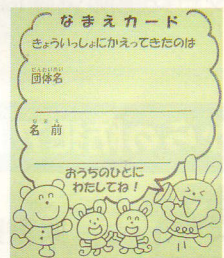 なまえカード
きょういっしょにかえってきたのは
団体名
名前
おうちのひとに
わたしてね!